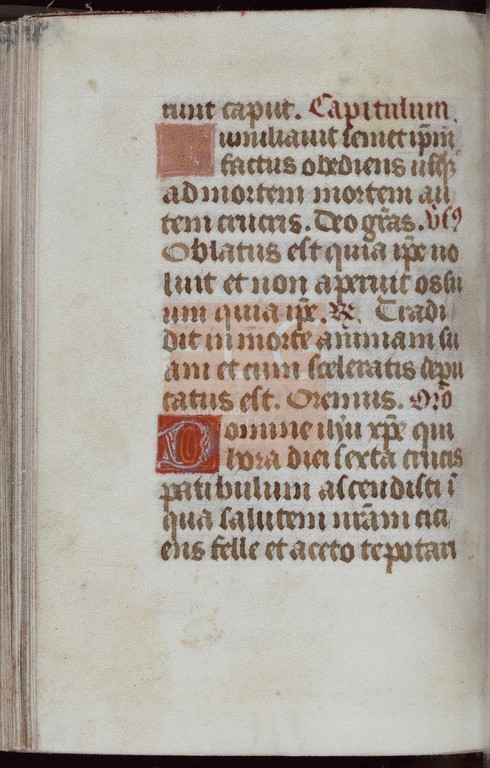 runt caput. Capitulum.
umiliauit semet ip̄m
factus obediens usq̨
ad mortem mortem au
tem crucis. Deo gr̄as. v̄sꝰ
Oblatus est quia ip̄e uo
luit et non aperuit os su
um quia ip̄e. R̄. Tradi
dit in morte animam su
am et cum sceleratis depu
tatus est. Oremus. Or̄o
Domine ih̄u xp̄e qui
hora diei sexta crucis
patibulum ascendisti ī
qua salutem nr̄am citi
ens felle et aceto te potari